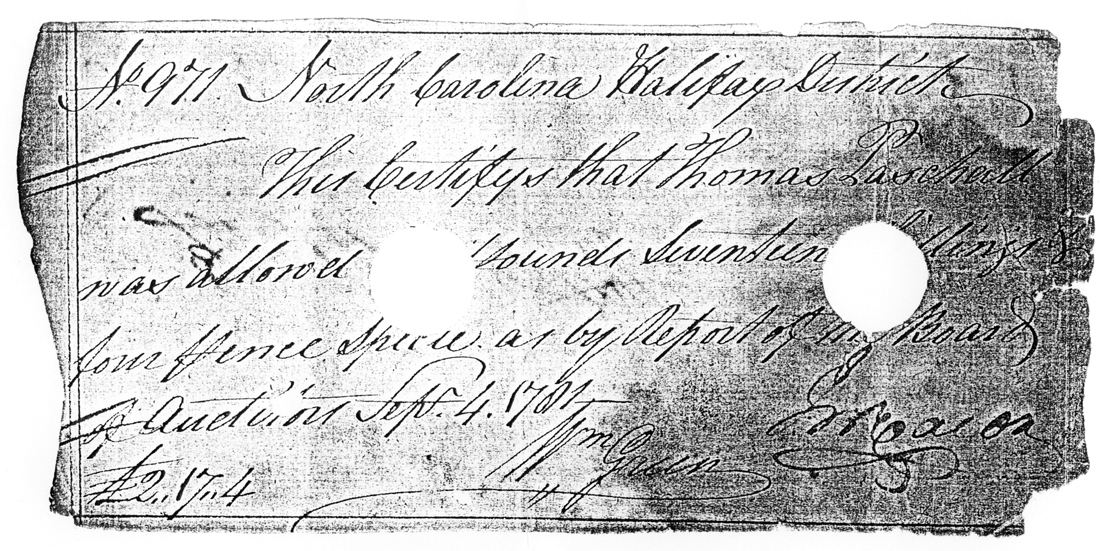 No. 971. North Carolina Halifax District
This Certifys that Thomas Paschall
was allowed Pounds Seventeen Shillings &
four pence Specie. as by Report of the Board
of Auditors Sept. 4. 1781
Wm Green
£2..17..4